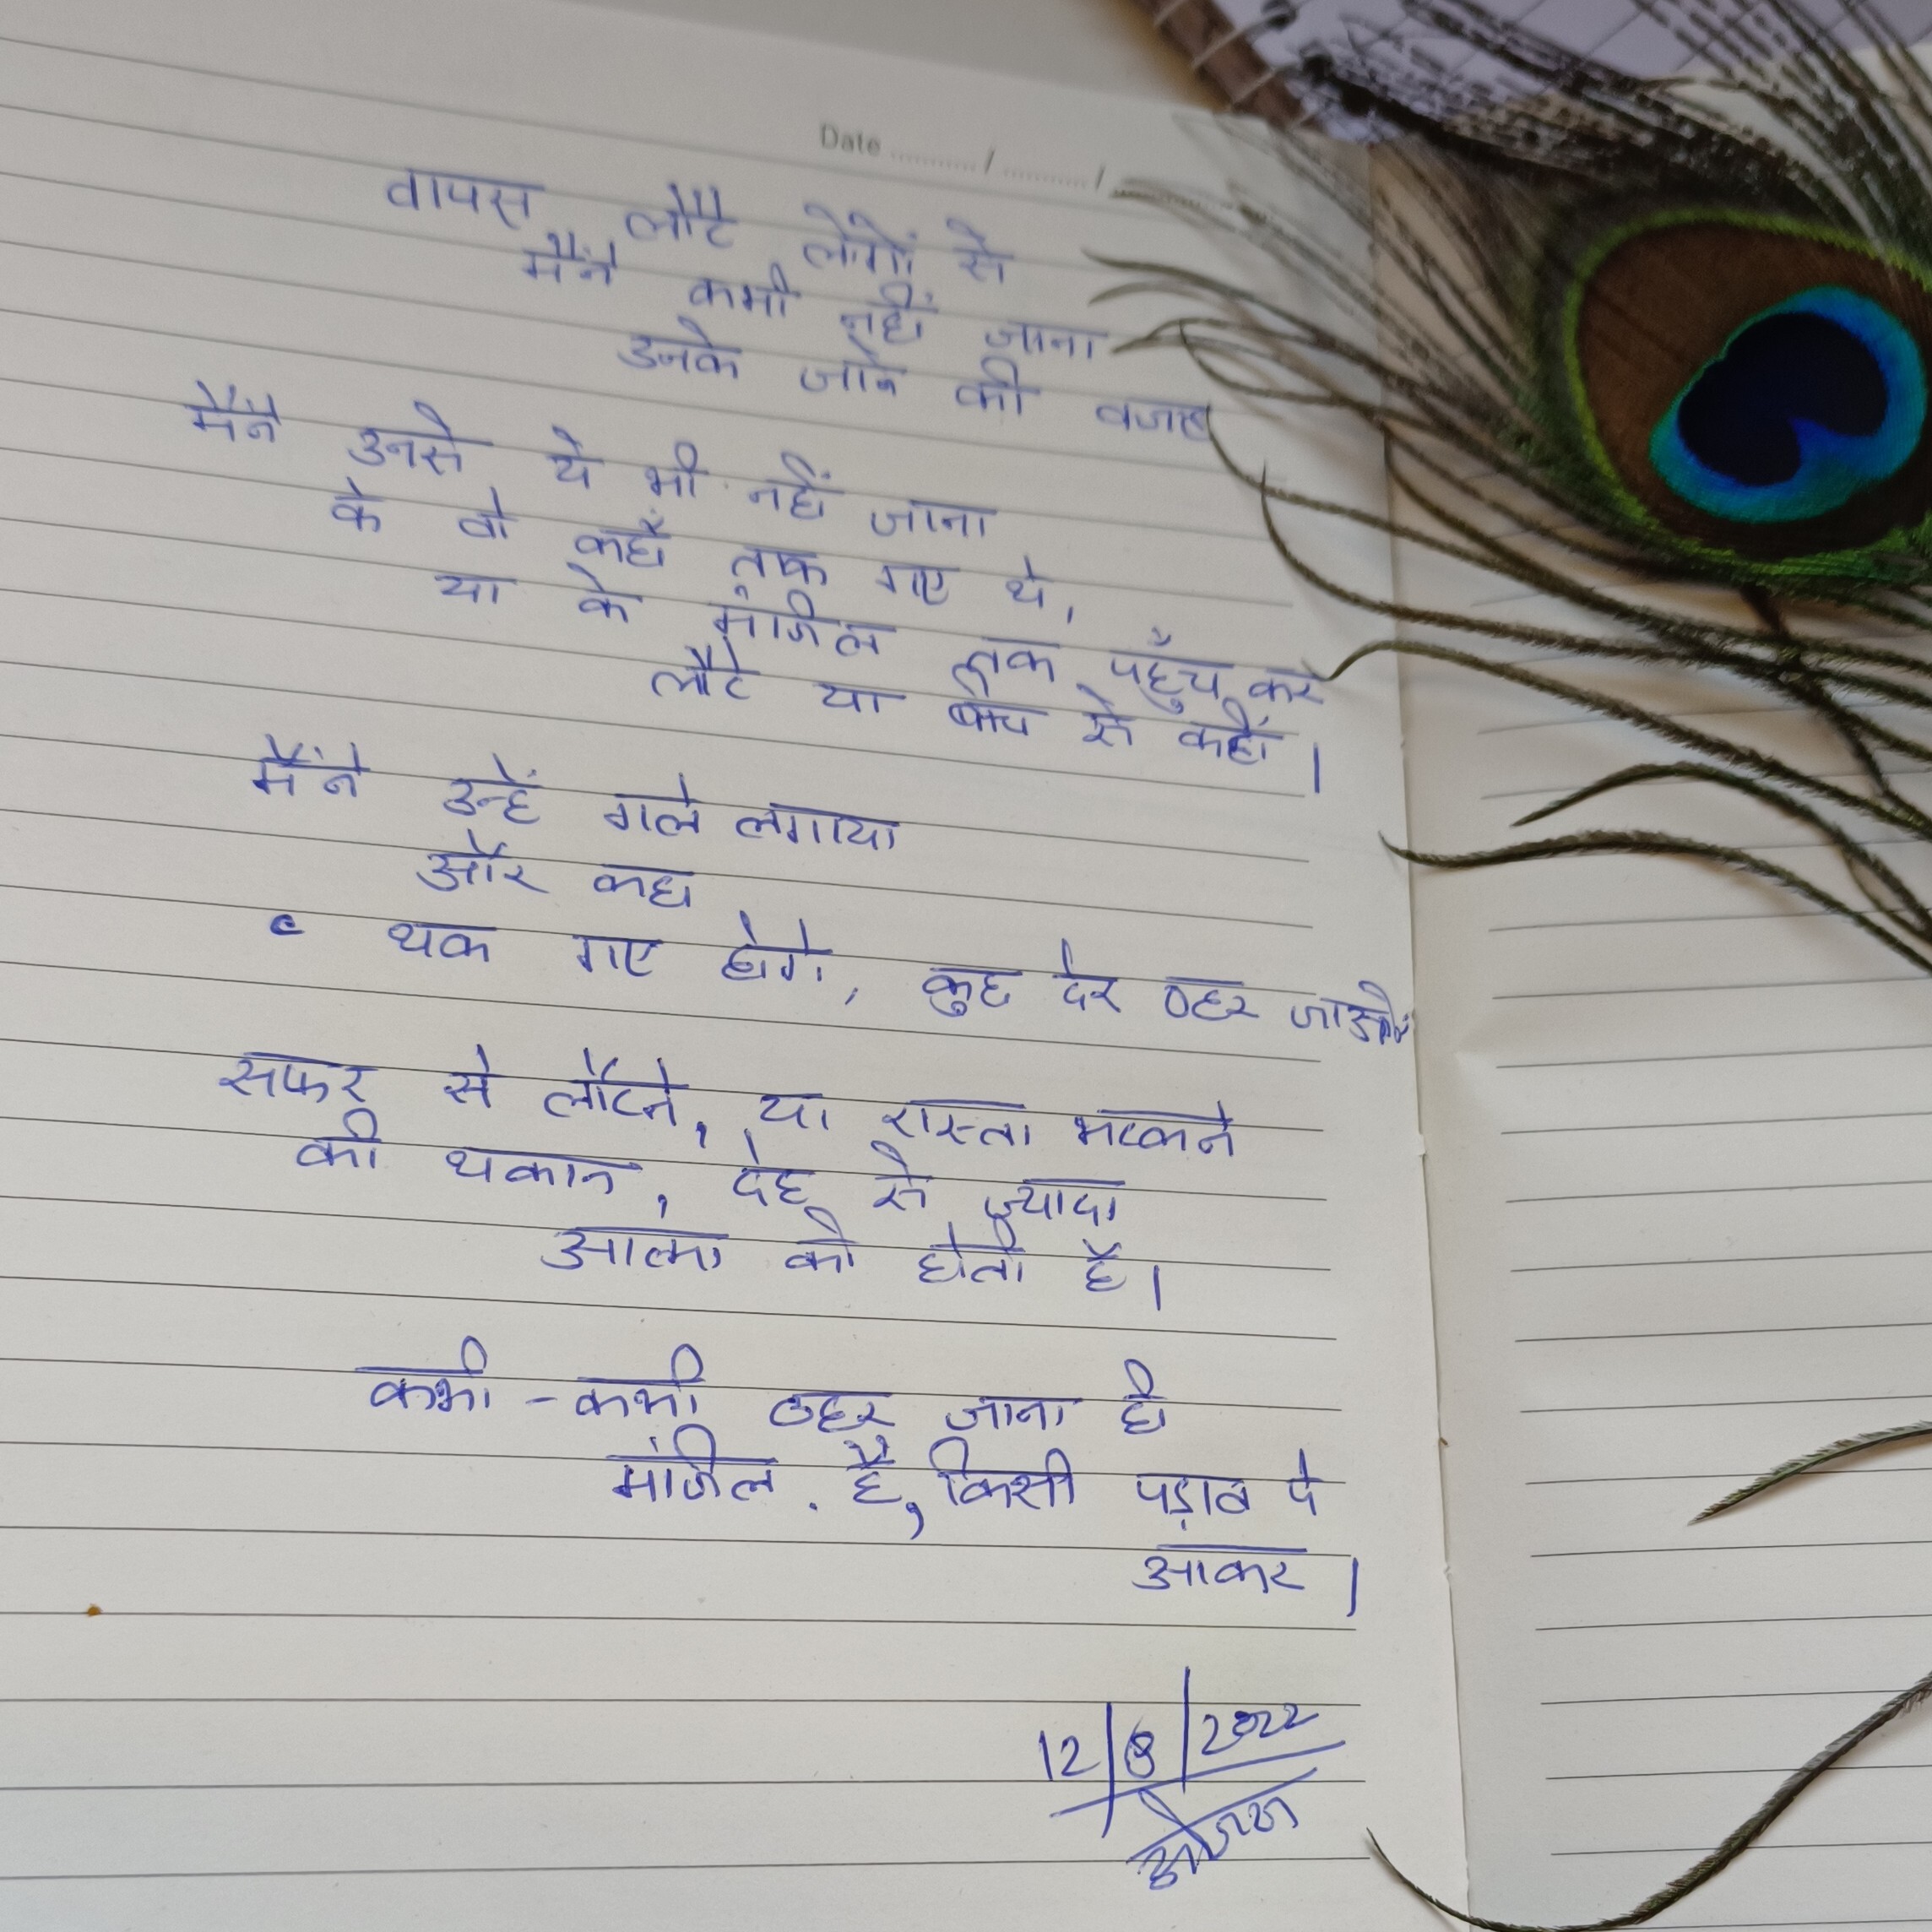 Date ........../........../
वापस लौटे लोगों से
मैंने कभी नहीं जाना
उनके जाने की वजह
मैंने उनसे ये भी नहीं जाना
के वो कहाँ तक गए थे,
या के मंज़िल तक पहुँच कर
लौटे या बीच से कहीं।
मैंने उन्हें गले लगाया
और कहा
थक गए होगे, कुछ देर ठहर जाओ
सफर से लौटने, या रास्ता भटकने
की थकान, देह से ज़्यादा
आत्मा को होती है।
कभी-कभी ठहर जाना ही
मंज़िल है, किसी पड़ाव पे
आकर।
12/8/2022